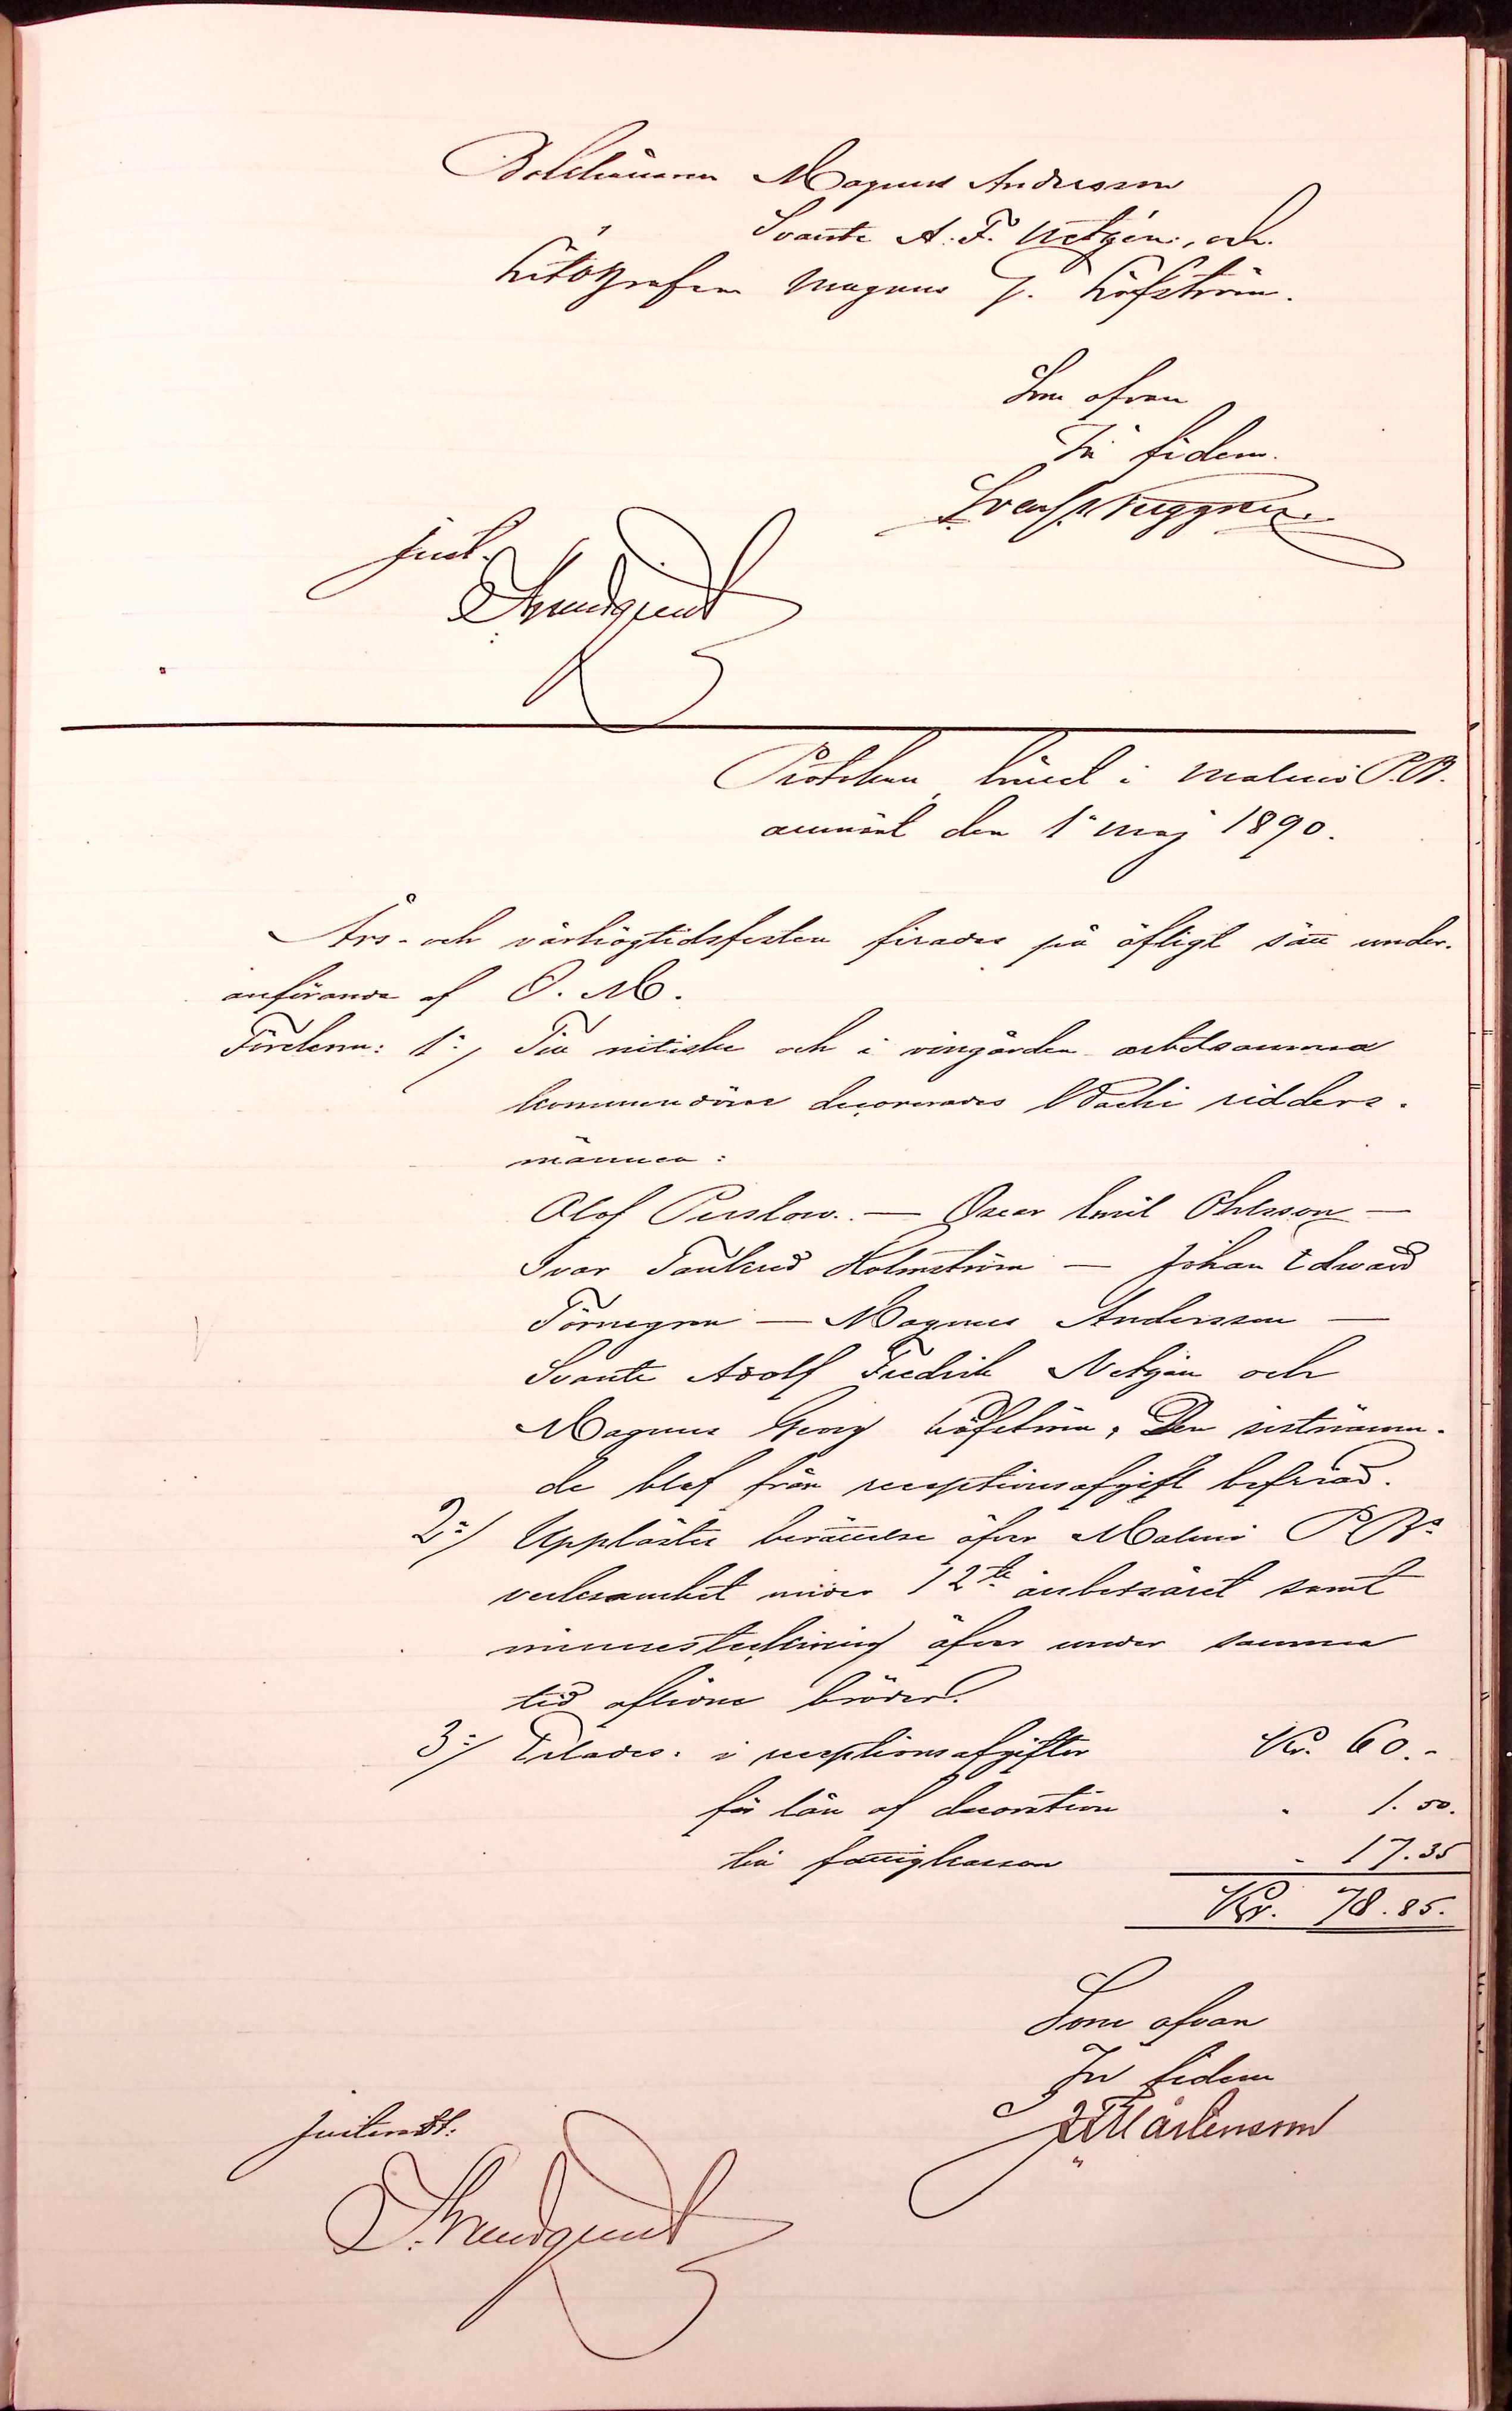 Bokhållaren Magnus Andersson
" Svante A. F. Netzén, och
Litografen Magnus G. Löfström.
Som ofvan
In fidem.
Just.
Strandquist
Protokoll hållet i Malmö P.B.
den 1 maj 1890.
Års- och vårhögtidsfesten firades på öfligt sätt under
anförande af O. M.
Förekom: 1:/ Till nitiske och i vingården arbetsamma
kommendörer decorerades Bacchi riddersmännen:
Olof Perslow. — Oscar Emil Ohlsson —
Ivar Holmström — Johan Edward
Törnegren — Magnus Andersson —
Svante Adolf Fredrik Netzén och
Magnus Georg Löfström. Den sistnämn-
de blef från receptionsafgift befriad.
2:/ Upplästes berättelse öfver Malmö P.B:s
verksamhet under 12te arbetsåret samt
minnesteckning öfver under samma
tid aflidne bröder.
3:/ Erlades: i receptionsafgifter Kr. 60.-
för lån af decoration " 1.50.
till fattigkassan " 17.35
Kr. 78.85.
Som ofvan
In fidem
Mårtensson
Justeradt:
Strandquist